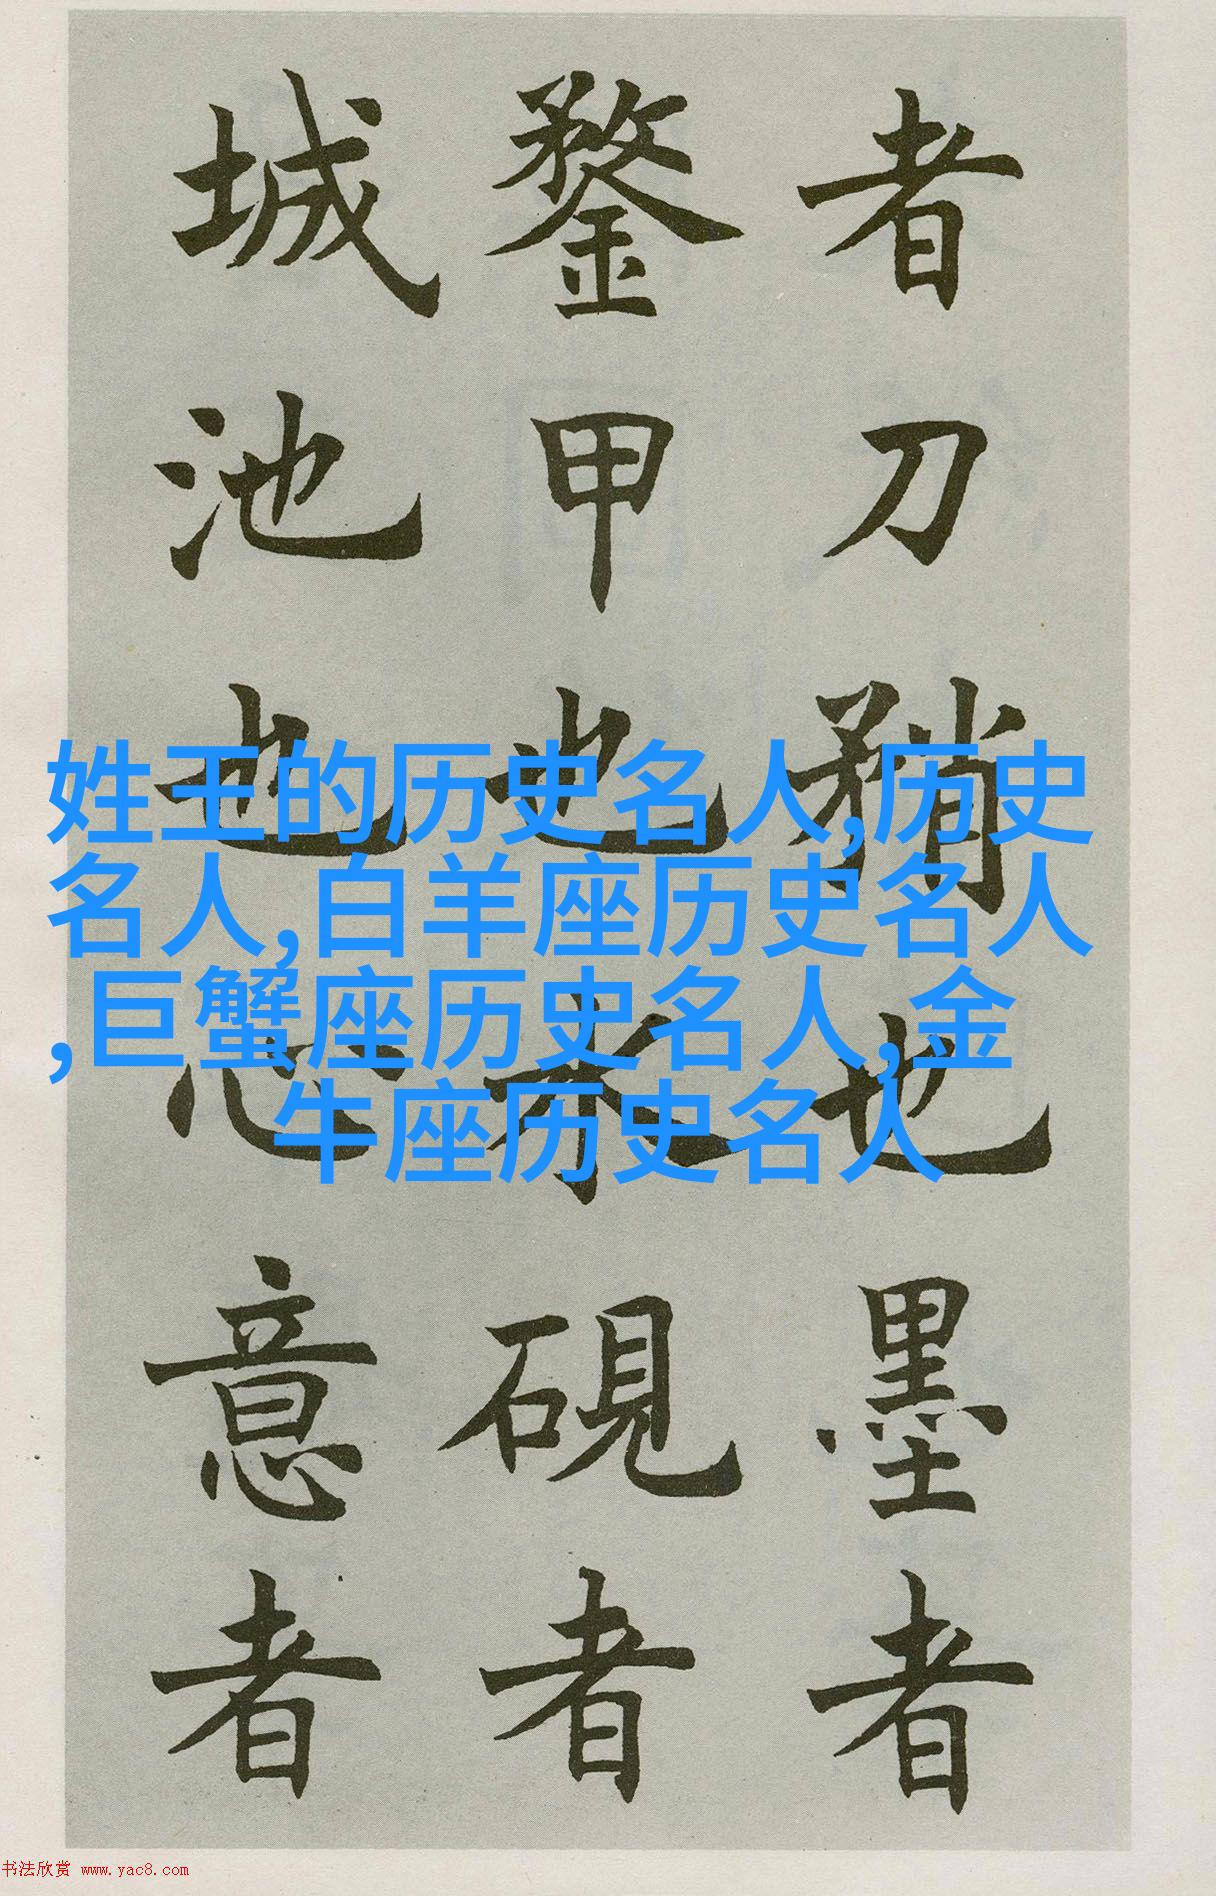 者刀矟也墨者
鍪甲也水硯者
城池也心意者
姓王的历史名人,历史
名人,白羊座历史名人
,巨蟹座历史名人,金
牛座历史名人
书法欣赏 www.yac8.com